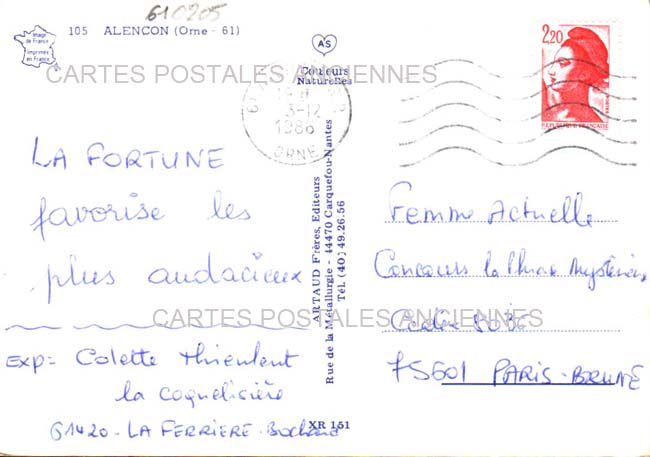 610205
Image de France
Imprimée en France
105 ALENCON (Orne - 61)
AS
Couleurs Naturelles
CARTES POSTALES ANCIENNES
61
3-12
1986
ORNE
2,20
REPUBLIQUE FRANÇAISE
LA FORTUNE
favorise les
plus audacieux
Exp: Colette Thieulent
la coquelisière
61420 - LA FERRIERE - Bochard
ARTAUD Frères, Editeurs
Rue de la Métallurgie - 44470 Carquefou-Nantes
Tél. (40) 49.26.56
XR 151
Femme Actuelle
Concours la Phrase Mystérieuse
Cedex
75601 PARIS - BRUNE
CARTES POSTALES ANCIENNES